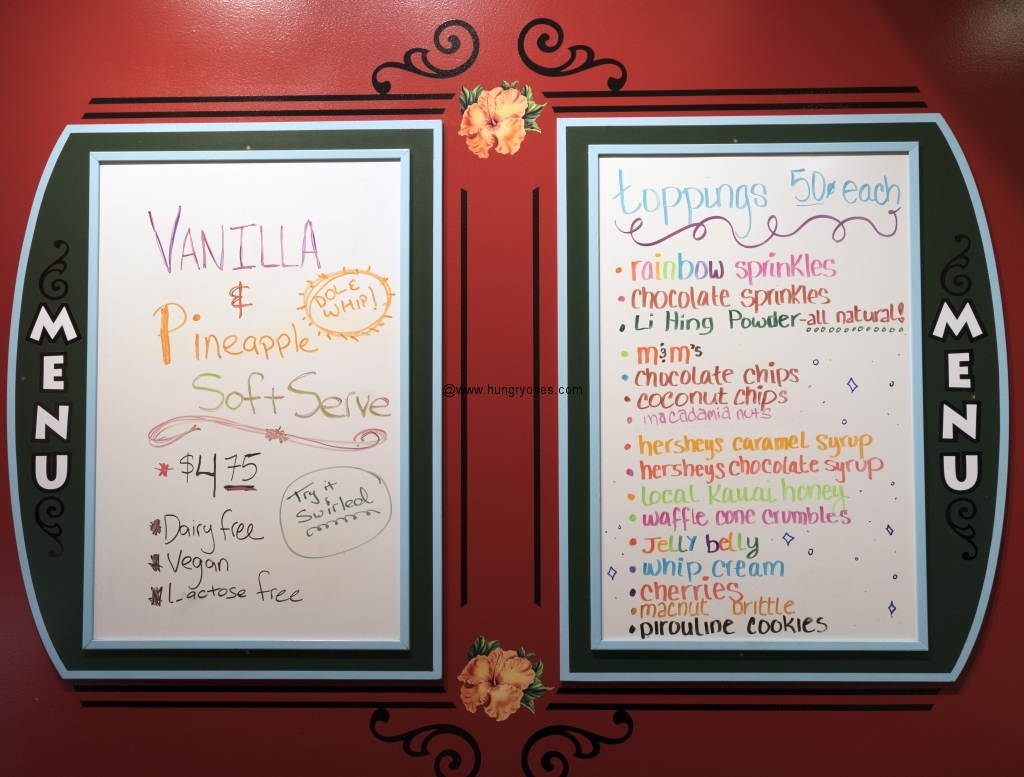 MENU
VANILLA
&
Pineapple
DOLE
WHIP!
Soft Serve
$4 75
Try it
Swirled
Dairy free
Vegan
Lactose free
@www.hungryones.com
toppings 50¢ each
• rainbow sprinkles
• chocolate sprinkles
• Li Hing Powder-all natural!
• m&m's
• chocolate chips
• coconut chips
• macadamia nuts
• hersheys caramel syrup
• hersheys chocolate syrup
• local Kauai honey
• waffle cone crumbles
• Jelly belly
• whip cream
• cherries
• macnut brittle
• pirouline cookies
MENU